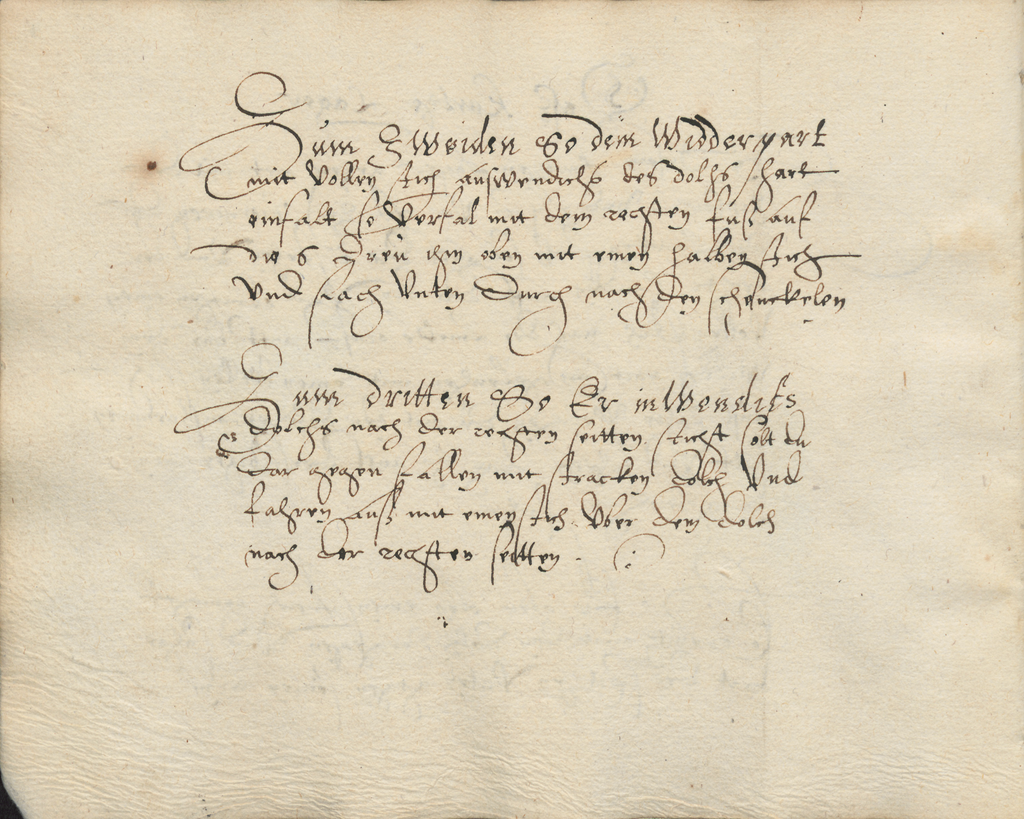 Zum Zweiden So dem Widderpart
mit Vollen stich auswendichs des dolchs hart
einfalt so Verfal mit dem rechsten fuß auf
die 6 ihm oben mit einen halben stich
Vnd stach Vnten Durch nach den schenckelen
Zum dritten So Er inWendichs
dolchs nach der rechsten seitten sticht solt du
des
Dar gegen fallen mit stracken dolch Vnd
fahren auß mit einen stich Vber den dolch
nach der rechsten seitten .